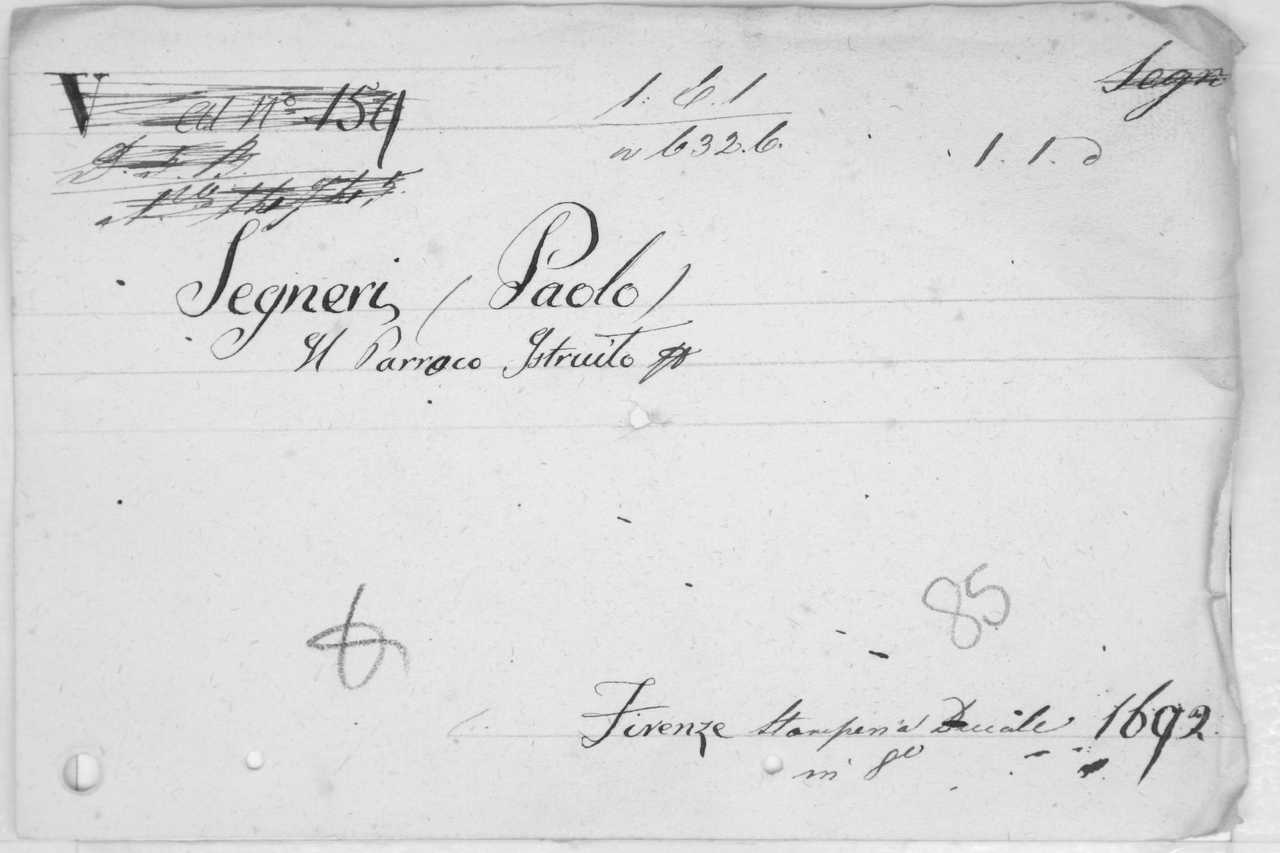 V Cal Nº 159
1. E. 1
Segn
n 632.6.
1. 1. d
Segneri, (Paolo)
Il Parroco Istruito
85
Firenze Stamperia Ducale 1692.
in 8º